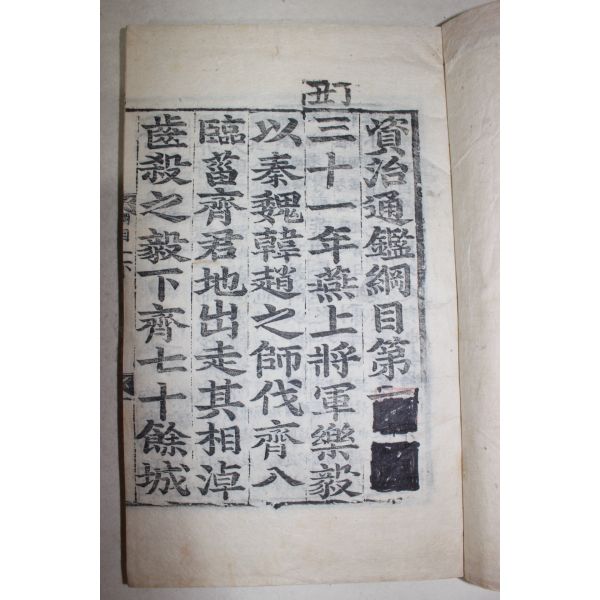 資治通鑑綱目第
丑丁
三十一年燕上將軍樂毅
以秦魏韓趙之師伐齊入
臨菑齊君地出走其相淖
齒殺之毅下齊七十餘城